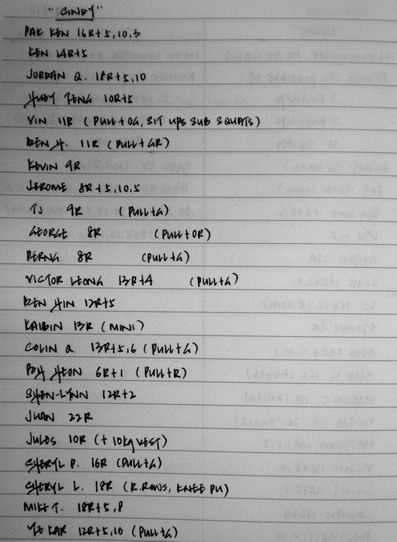 "CINDY"
PAK KEN 16R+5,10,3
KEN 14R+5
JORDAN Q. 18R+5,10
JUDY TENG 10R+5
VIN 11R (PULL+OG, SIT UPS SUB SQUATS)
BEN H. 11R (PULL+GR)
KEVIN 9R
JEROME 8R+5,10,5
TJ 9R (PULL+G)
GEORGE 8R (PULL+OR)
BERNG 8R (PULL+G)
VICTOR LEONG 13R+4 (PULL+G)
BEN YIN 12R+5
KAIBIN 13R (MINI)
COLIN Q 13R+5,6 (PULL+G)
POH HEON 6R+1 (PULL+R)
SHEN-LYNN 12R+2
JUAN 22R
JULES 10R (+10KG VEST)
SHERYL P. 16R (PULL+G)
SHERYL L. 18R (R.ROWS, KNEE PU)
MIKE T. 18R+5,8
YE KAR 12R+5,10 (PULL+G)